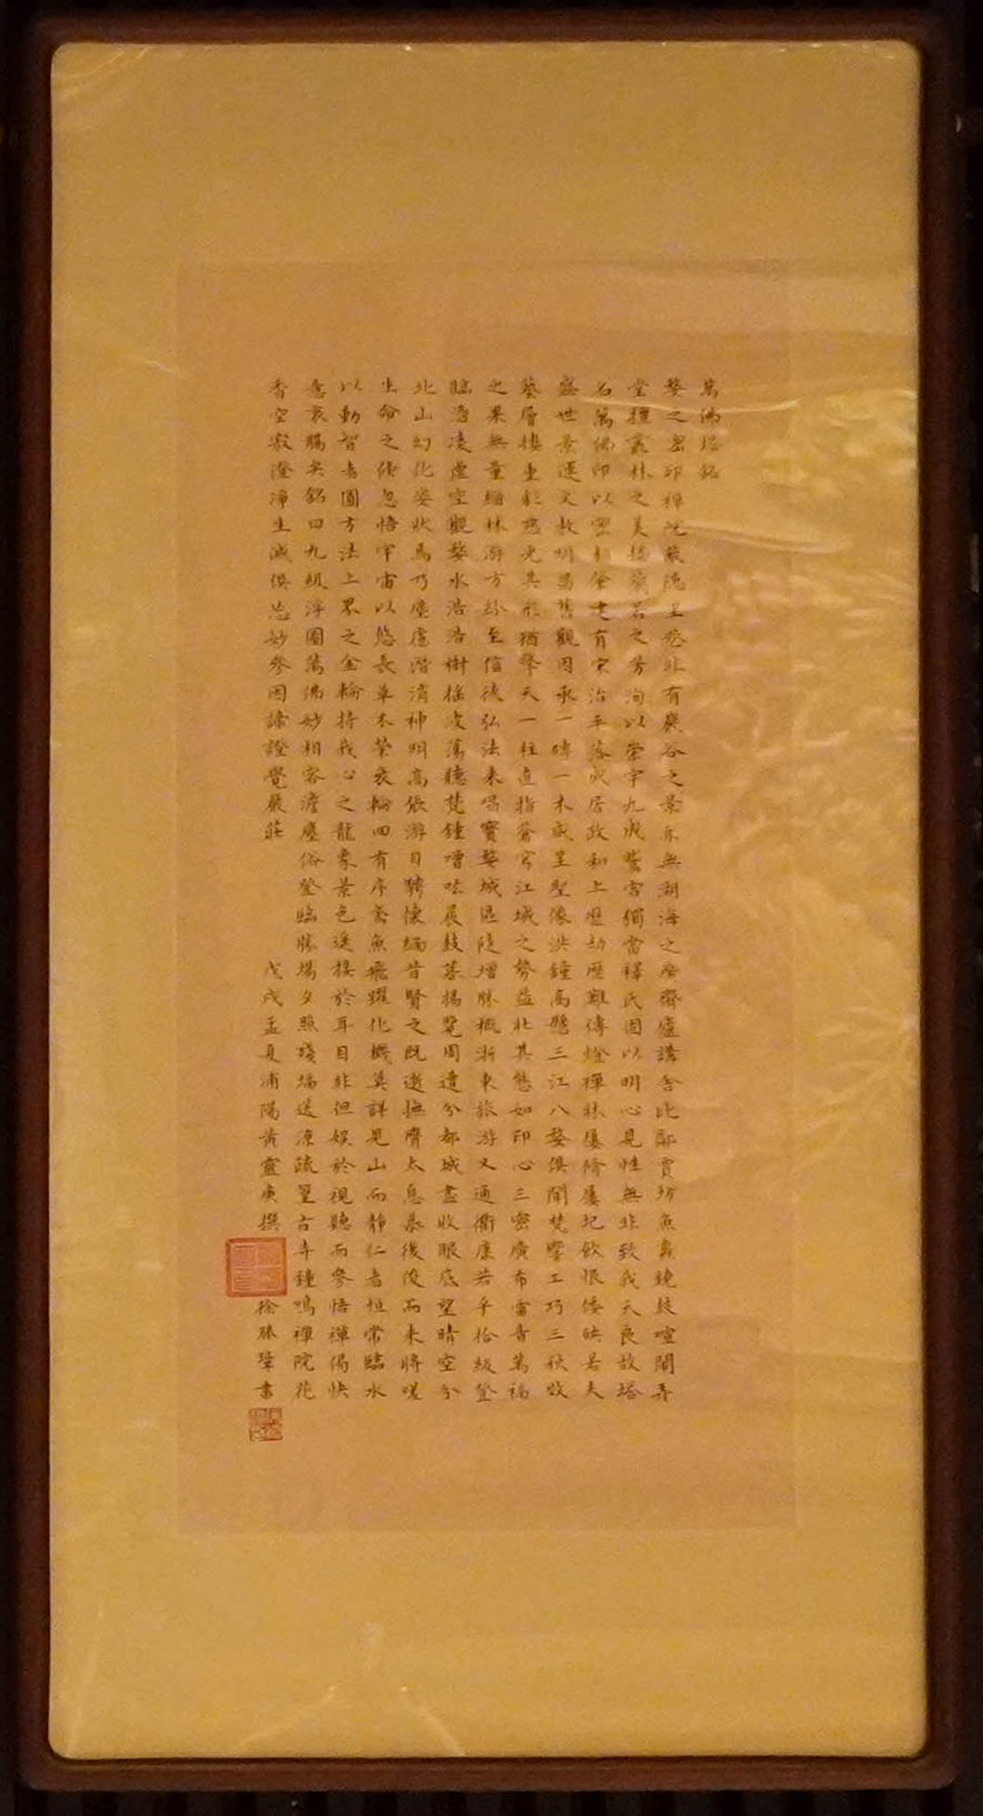 萬佛塔銘
婺之密印禪院蔽隱其忽非有巖谷之景亦無湖海之廣齊廬講舍比鄰賈坊魚鼓鐃鼓喧闐弄
堂擅叢林之美擷蘭若之芳洵以崇宇九成鷲宮獨當釋氏固以明心見性無非致我天良故塔
名萬佛印以密印肇建有宋治平落成居政和上歷劫歷難傳燈禪林屢脩屢圮飲恨倭昳若夫
盛世景運文教明昌舊觀因承一磚一木咸呈聖像洪鐘高懸三江八婺俱聞梵響工巧三秋效
藝層樓重彩慈光其形猶擎天一柱直指蒼穹江城之勢益壯其態如印心三密廣布雷音萬福
之果無量緇林游方紛至信徒弘法来唱寶婺城區陡增勝概浙東旅游又通衢康若乎拾級登
臨馮凌虛空觀婺水浩浩樹搖波蕩聽梵鐘噌吰晨鼓暮揚覽周遭兮都城盡收眼底望晴空兮
北山幻化姿狀焉乃塵慮潛消神明高張游目騁懷緬昔賢之既逝撫膺太息恭後俊而来將嗟
生命之倏忽悟宇宙以悠長草木榮衰輪回有序鳶魚飛躍化機莫詳見山而靜仁者恒常臨水
以動智者圓方法上界之金輪持我心之龍象景色逞接於耳目非但娱於視聽而參悟禪偈快
意哀腸矣銘曰九級浮圖萬佛妙相容澹塵俗登臨勝場夕照殘塘送凉疏篁古寺鐘鳴禪院花
香空寂澄凈生滅俱忘妙參因諦證覺嚴莊
戊戌孟夏浦陽黃靈庚撰
徐勝犖書